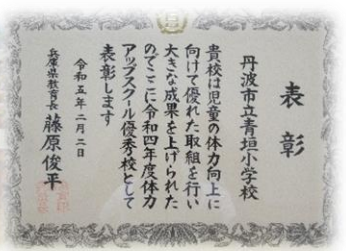 表彰
丹波市立青垣小学校
貴校は児童の体力向上に
向けて優れた取組を行い
大きな成果を上げられた
のでここに令和四年度体力
アップスクール優秀校として
表彰します
令和五年二月二日
兵庫県教育長 藤原俊平